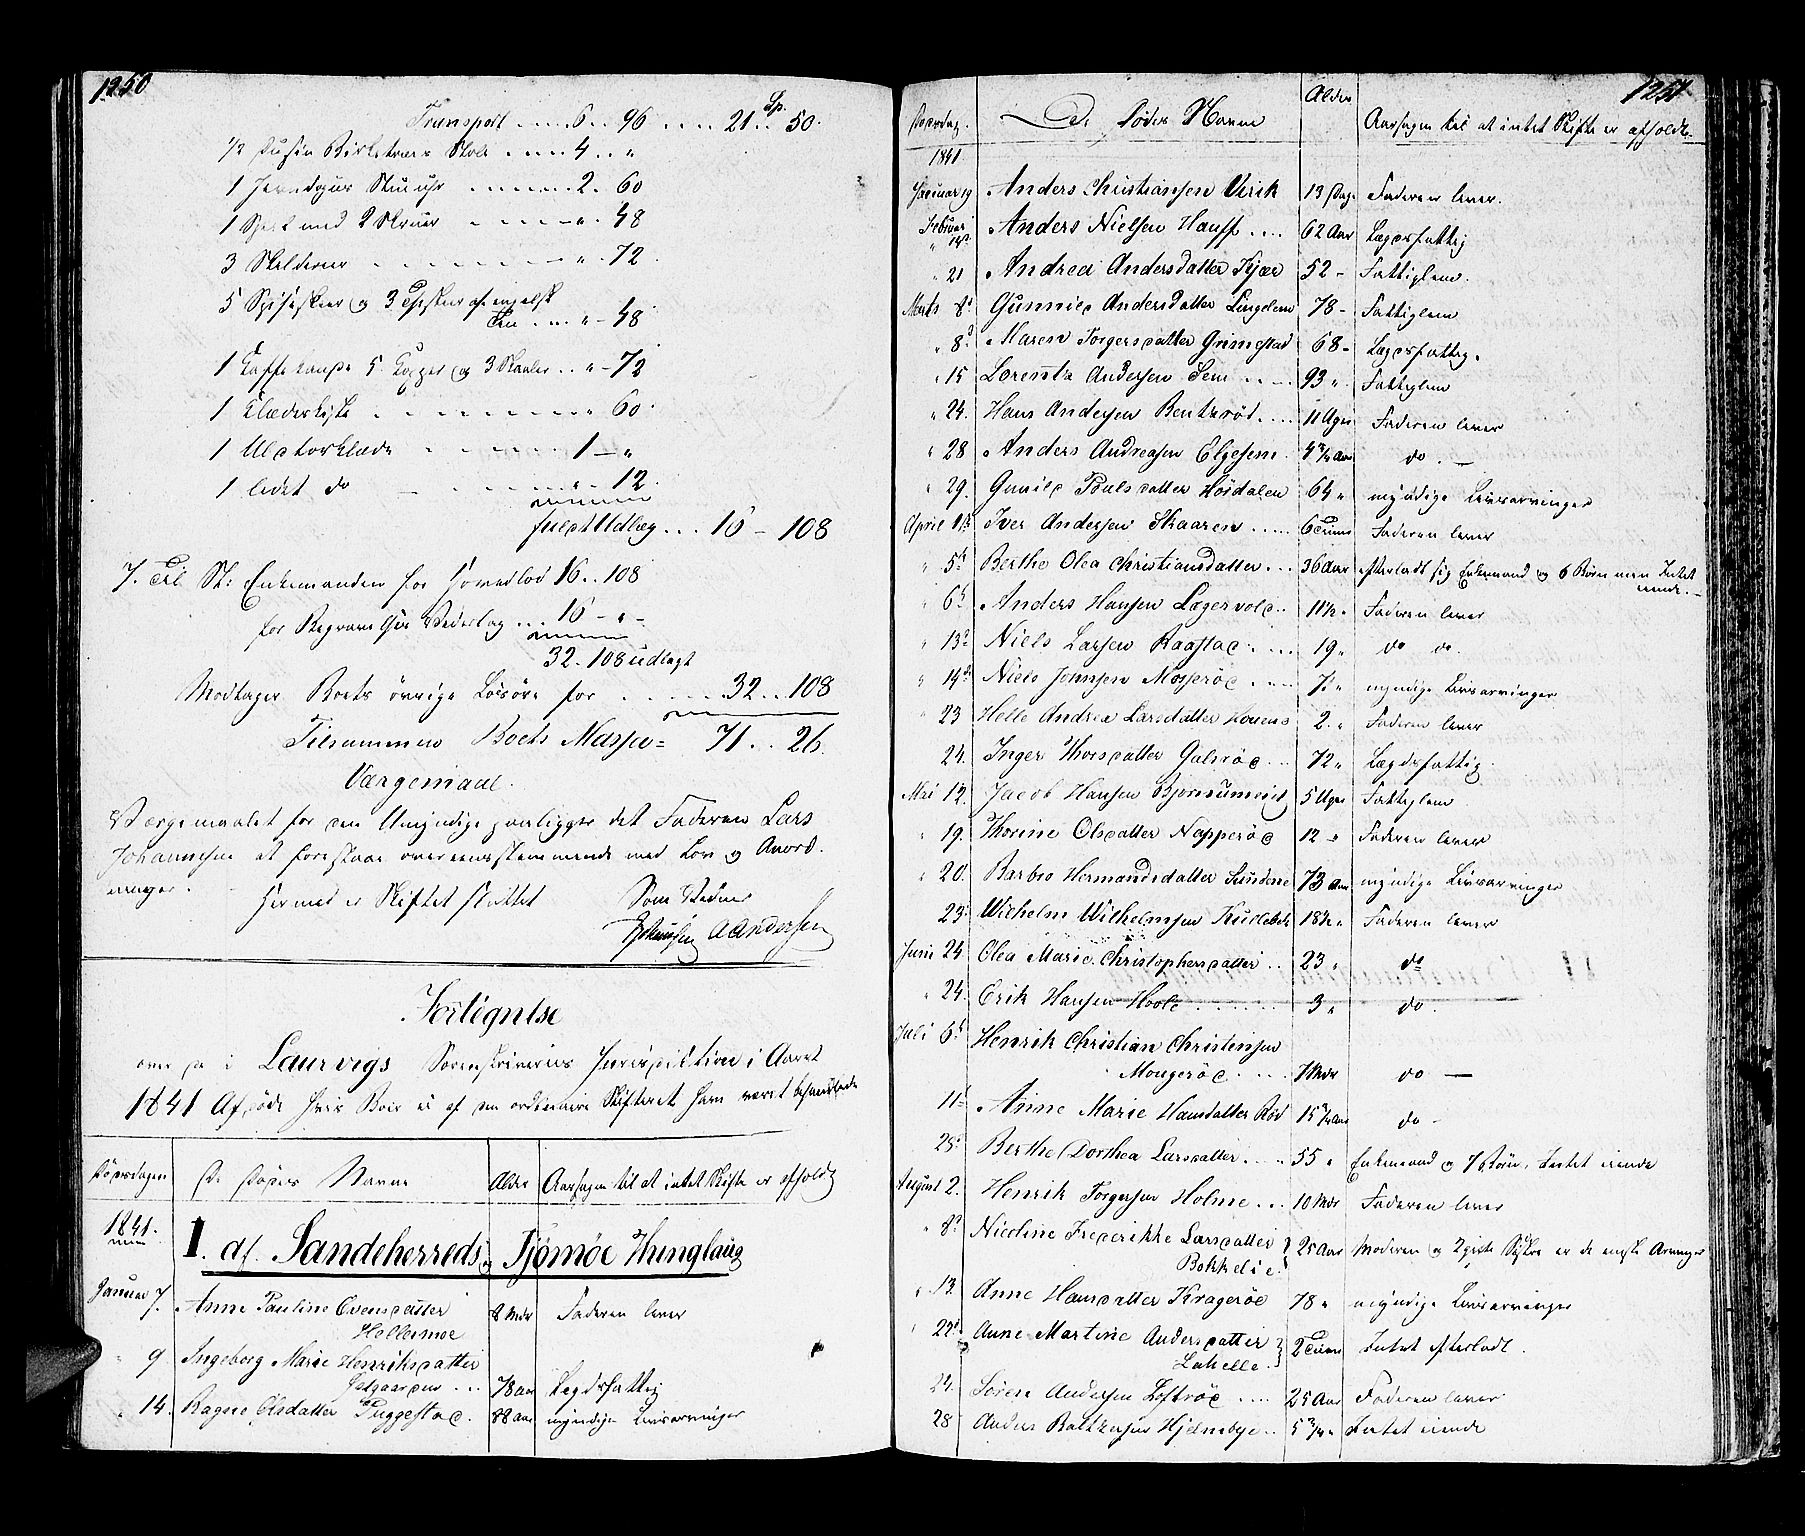 1250
Transport .... 6 .. 96 .... 21 .. 50.
Sp.
1/2 Dusin Birketræes Stole .... 4 .. "
1 Stuuhr ...... 2. 60
1 med 2 Skruer ..... ". 48
3 Skilderier ....... ". 72.
5 Spiseskeer og 3 Theskeer af engelsk
Tin .... " - 48
1 Kaffekande 5 Kopper og 3 Skaaler .. " - 72
1 Klædekiste ........ " 60.
1 Uldtørklæde ...... 1 - "
1 lidet do - ..... " .. 12.
fuldt Udlæg ... 16 - 108
7. Til St: Enkemanden for Hovedlod 16 .. 108
for Begravelses Vederlag ... 16 - " -
32. 108 udlagt
Modtager Boets øvrige Løsøre for ..... 32 .. 108
Tilsammen Boets Massa = 71 .. 26.
Værgemaal.
Værgemaalet for den Umyndige paaligger det Faderen Lars
Johannesen at forestaae overeensstemmende med Lov og Anord-
ninger.
Hermed er Skiftet sluttet Som Vidner
A Andersen
Fortegnelse
over de i Laurvigs Sorenskriveries Jurisdiktion i Aaret
1841 Afdøde hvis Boer ei af den ordinaire Skifteret have været behandlede
Dødsdagen De Dødes Navne Alder Aarsagen til at intet Skifte er afholdt
1841.
I. af Sandeherreds og Tjömöe Thinglaug
Januar 7. Anne Pauline Evensdatter
Hellermoe 8 Mdr Faderen lever
" 9 Ingeborg Marie Henriksdatter
... 78 aar Lægdsfattig
" 14. Ragne Olsdatter Puggestad. 88 aar myndige Livsarvinger
1251
Dødsdag. De Dødes Navne Alder Aarsagen til at intet Skifte er afholdt.
1841
Januar 19 Anders Christiansen Virik 13 Dage Faderen lever.
Februar " 14de Anders Nielsen Hauff .... 62 Aar Lægdsfattig
" 21 Andrea Andersdatter Kjær 52 - Fattiglem.
Marts 8d Gunnild Andersdatter Lingelem 78 - Fattiglem
" 8d Maren Torgersdatter Grimestad 68 - Lægdsfattig.
" 15 Lorentz Andersen Sem .... 93 ". Fattiglem
" 24. Hans Andersen Bentsröd .... 11 Uger Faderen lever
" 28 Anders Andreasen Elgesem. 4 3/4 Aar do. -
" 29. Gunild Poulsdatter Hösdalen 64 " myndige Livsarvinger
April 1st Iver Andersen Skaaren ..... 6 Timer Faderen lever
" 5t Berthe Olea Christiansdatter ... 36 Aar efterladt sig Enkemand og 6 Börn men Intet
eiende. -
" 6t Anders Hansen Lögervold .. 11 1/2 " Faderen lever
" 13d Niels Larsen Raastad ..... 19 " do do.
" 14d Niels Johnsen Mosseröd .... 7. " myndige Livsarvinger
" 23 Helle Andrea Larsdatter Houens 2. " Faderen lever
24. Inger Thorsdatter Galsröd ... 72 " Lægdsfattig.
Mai 12. Jacob Hansen 5 Uger Fattiglem
" 19. Thorine Olsdatter Napperöd 12 " Faderen lever
" 20. Barbro Hermandsdatter Sundene 73 Aar myndige Livsarvinger
23. Wilhelm Wilhelmsen 18 1/2 " Faderen lever
Juni 24. Olea Marie Christophersdatter .. 23 " do
" 24. Erik Hansen Hvole ....... 3 " do.
Juli 6t Henrik Christian Christensen
Mongeröd .... 7 Mdr do -
11te Anne Marie Hansdatter Röd 15 3/4 Aar do -
25. Berthe Dorthea Larsdatter .... 55 " Enkemand og 7 Börn, Intet eiende
August 2. Henrik Torgersen Holme ... 10 Mdr Faderen lever
" 8d Nicoline Frederikke Larsdatter
Bokkelie. 25 Aar Moderen og 2 gifte Sødskende er de eneste Arvinger
" 13. Anne Hansdatter Krageröd 78 " myndige Livsarvinger
" 22d Anne Martine Andersdatter
Lahelle. 2 Timer Intet efterladt.
24. Sören Andersen Löströd .... 25 Aar Faderen lever
28 Anders Baltzersen Hjelmbye .. 5 3/4 " Intet eiende